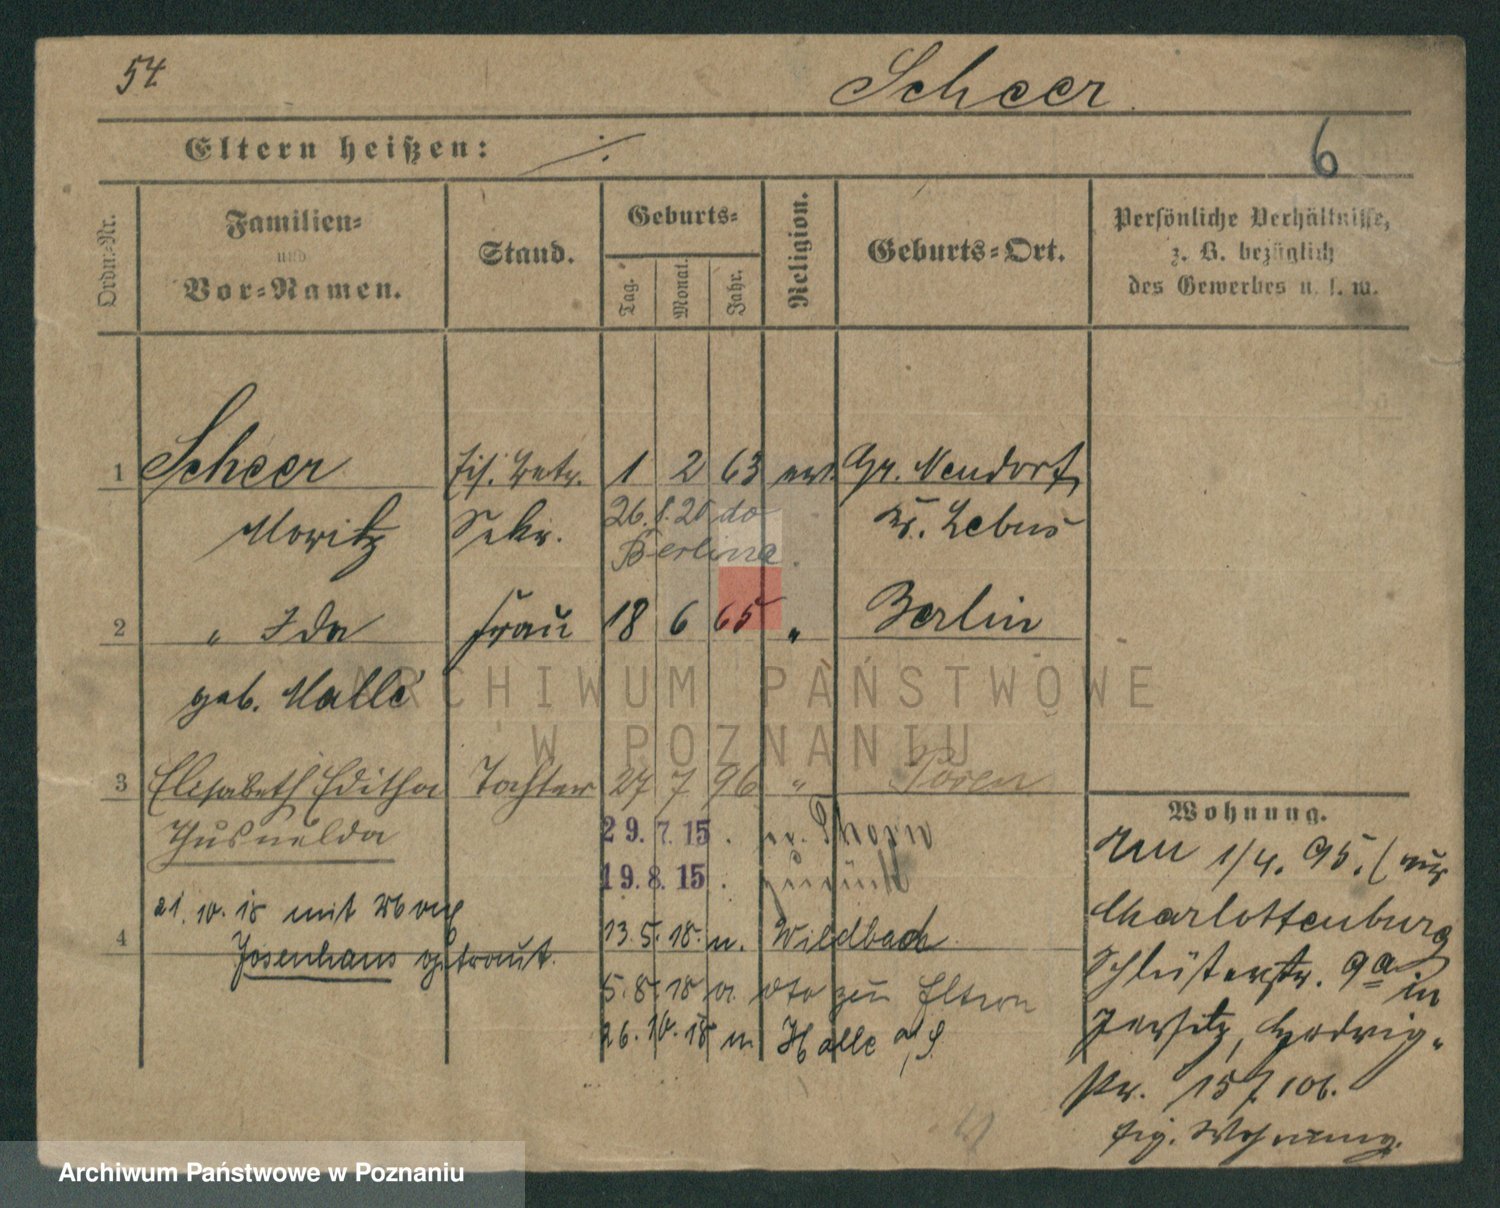 54
Scheer
Eltern heißen: ·/·
6
Ordn.-Nr.
Familien-
und
Vor-Namen.
Stand.
Geburts-
Tag.
Monat.
Jahr.
Religion.
Geburts-Ort.
Persönliche Verhältnisse,
z. B. bezüglich
des Gewerbes u. s. w.
1 Scheer Eis. Betr. 1 2 63 Gr. Neudorf
Moritz Sekr. 26. 20 do Kr. Lebus
Berlin
2 " Ida Frau 18 6 65 " Berlin
geb. Mallé
3 Elisabeth Editha Tochter 27 7 96 " Posen
Thusnelda
29. 7. 15. Thorn
19. 8. 15. zurück
21. 10. 18 mit
4 Josenhaus getraut.
13. 5. 18. n. Wildbach
5. 8. 18 v. dto zu Eltern
26. 10. 18 n Halle a/S.
Wohnung.
1/4. 95. (aus
Charlottenburg
Schlüterstr. 9a in
Jersitz, Hedwig-
str. 15
eig. Wohnung.
ARCHIWUM PAŃSTWOWE
W POZNANIU
Archiwum Państwowe w Poznaniu